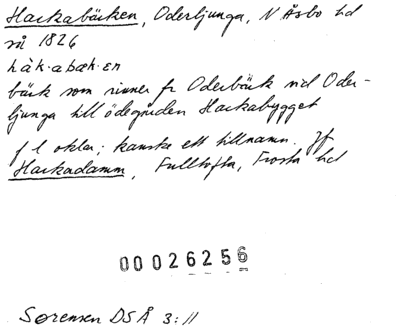 Hackabäcken, Oderljunga, N Åsbo hd
rå 1826
håk·abæk·en
bäck som rinner fr Oderbäck vid Oder-
ljunga till ödegården Hackabygget
f l oklar; kanske ett tillnamn. Jfr
Hackadamm, Fulltofta, Frosta hd
00026256
Sörensen DSÅ 3:11